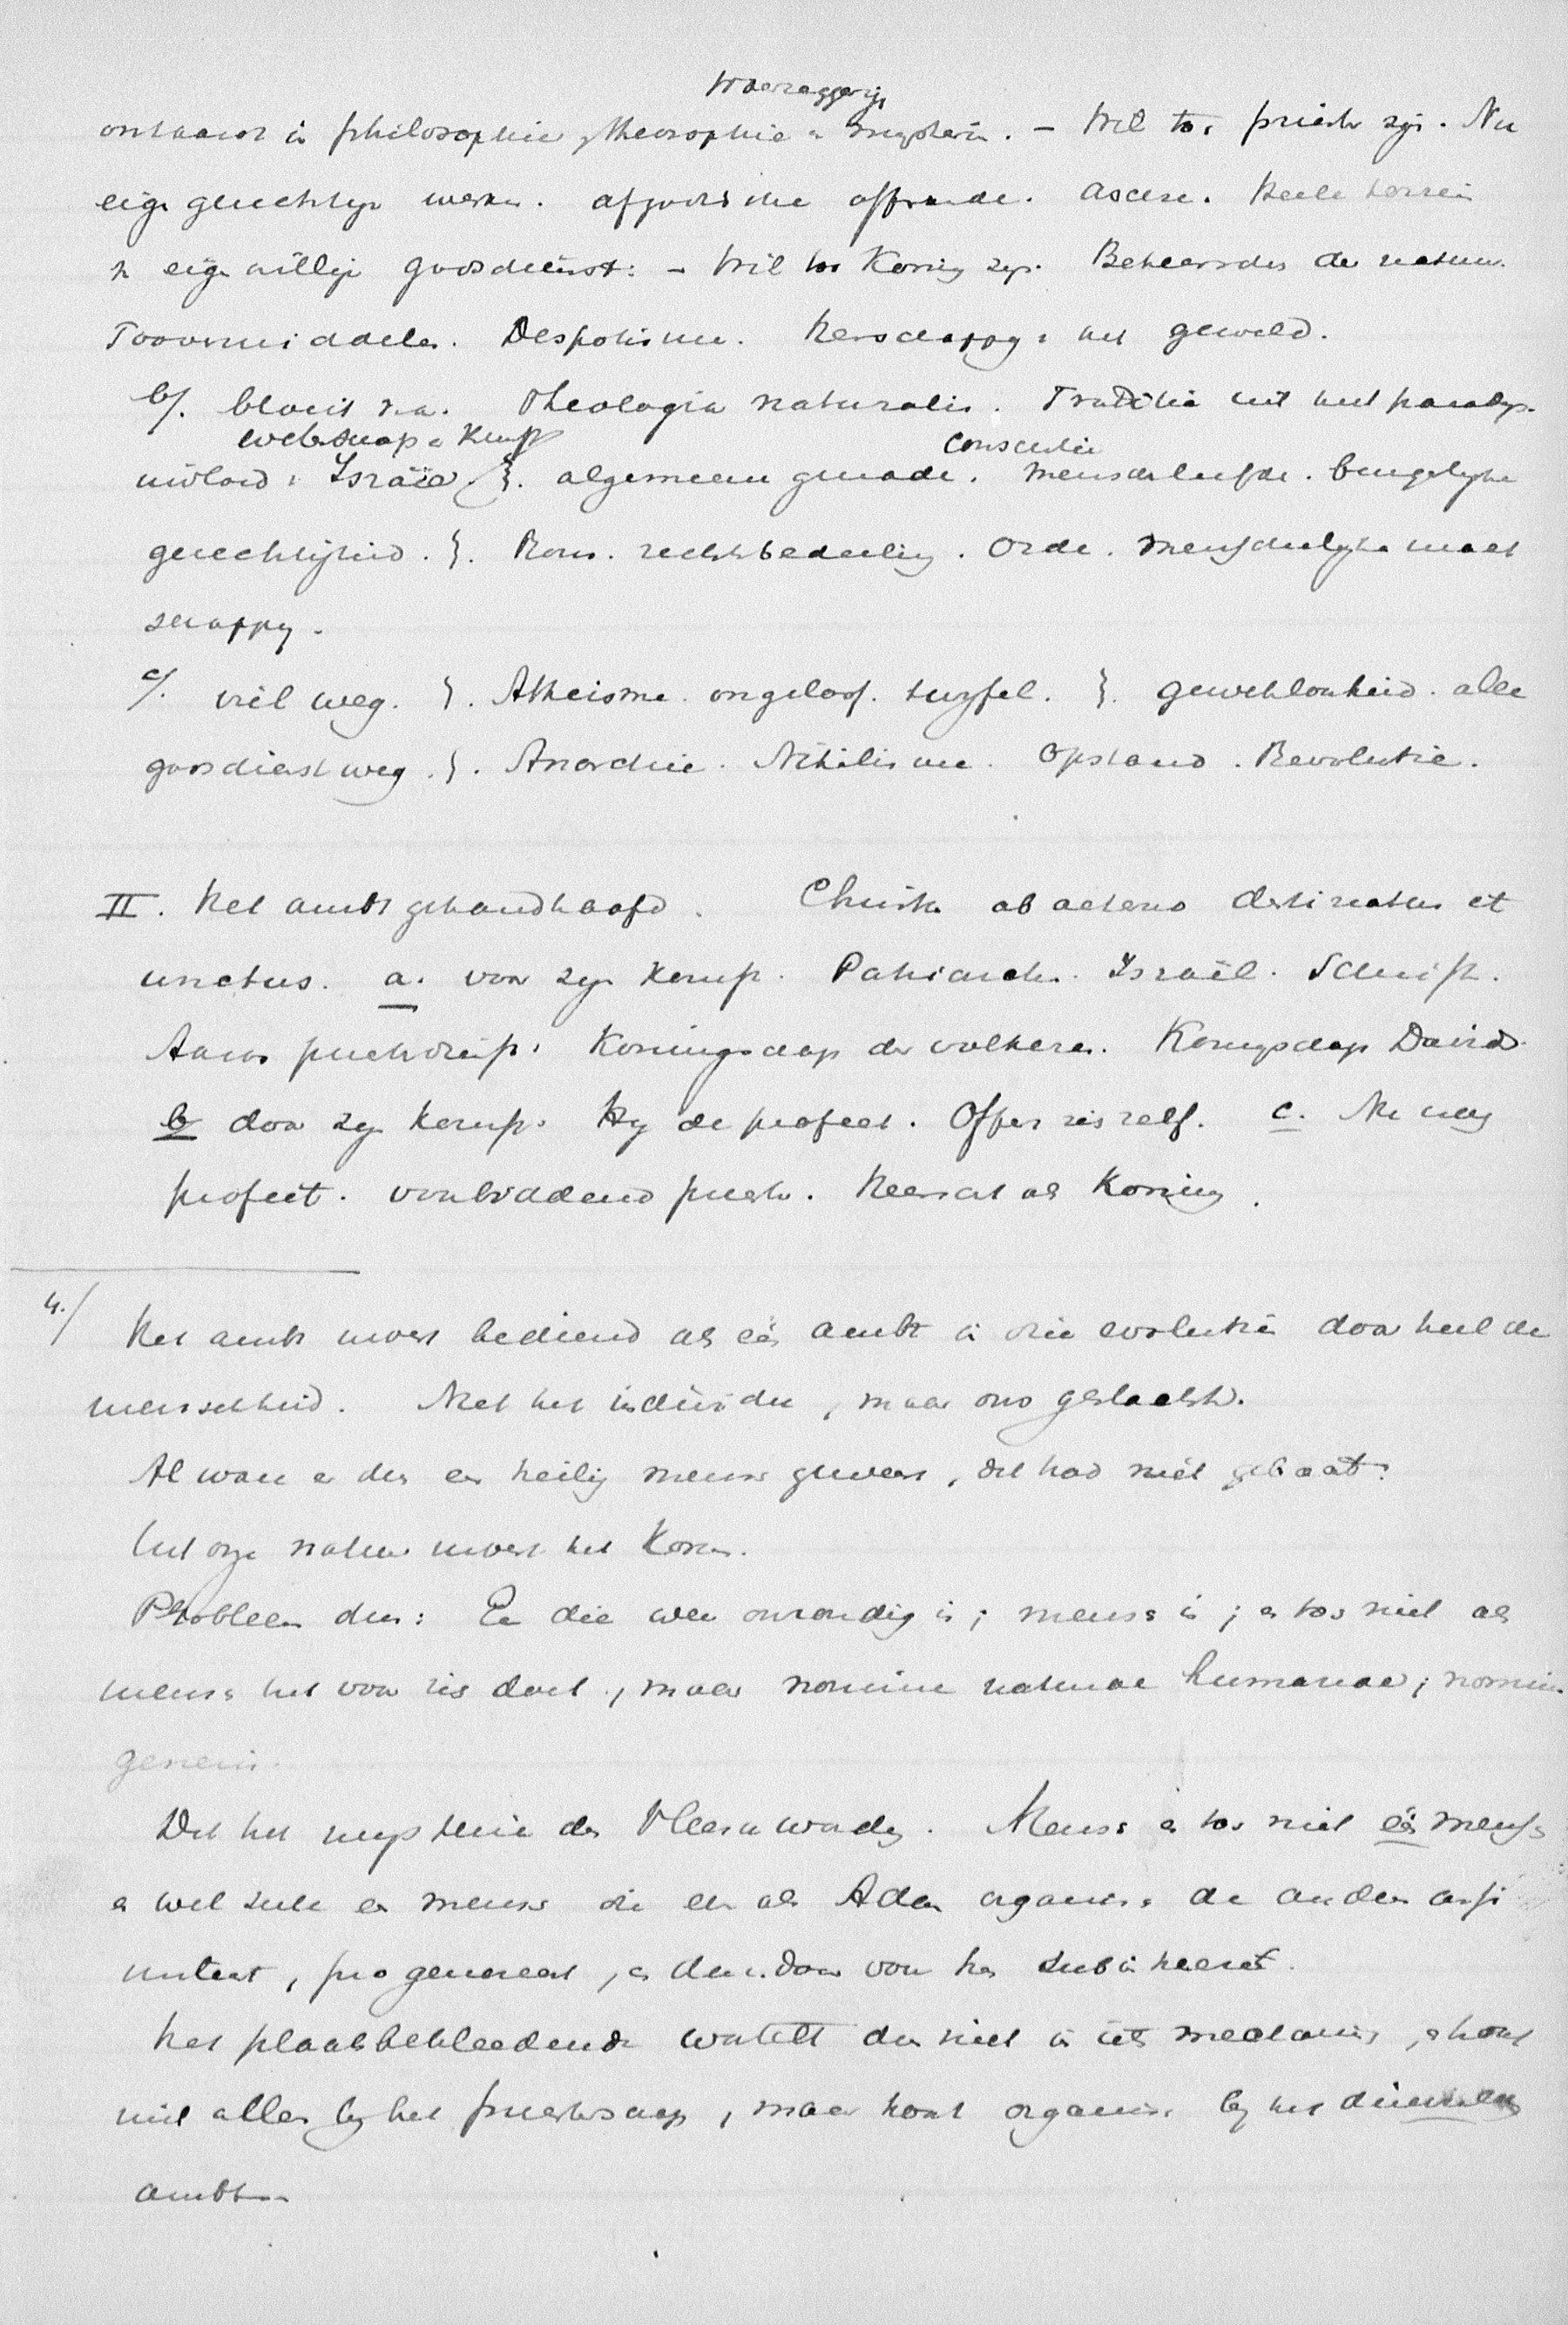 Waarzeggerij
ontaard in philosophie, theosophie en mysterie. – Wil toch priester zijn. Nu
eigengerechtige werken. afgodische offerande. Ascese. Heele terrein
v. eigenwillige godsdienst: – Wil tot Koning zijn. Beheerscher der natuur.
Toovermiddelen. Despotisme. Heerschappij met geweld.
b/. bloeit na. Theologia naturalis. Traditie uit het paradijs.
wetenschap en Kunst conscientie
invloed v Israël. }. algemeene genade. menschenliefde. burgerlijke
gerechtigheid. }. Rom. rechtsbedeeling. Orde. menschelijke maat
schappij.
c/. viel weg. }. Atheisme. ongeloof. twijfel. }. gewetenloosheid. alle
godsdienst weg. }. Anarchie. Nihilisme. Opstand. Revolutie.
II. Het ambt gehandhaafd. Christus ab aeterno destinatus et
unctus. a. voor zijn komst. Patriarchen. Israël. Schrift.
Aarons priesterschap. Koningschap der volkeren. Koningschap Davids.
b door zijn komst. Hij de profeet. Offer zich zelf. c. Nu nog
profeet. voorbiddend priester. Heerscht als Koning.
4./ Het ambt moest bediend als één ambt in drie evolutiën door heel de
menschheid. Niet het individu, maar ons geslacht.
Al ware er dus een heilig mensch geweest, dit had niet gebaat.
Uit onze natuur moest het komen.
Probleem dus: Een die wel onzondig is; mensch is; en toch niet als
mensch het voor zich doet, maar nomine naturae humanae; nomine
generis.
Dit het mysterie der Vleeschwording. Mensch en toch niet één mensch
en wel zulk een mensch die evenals Adam organisch de anderen
, progenereert, en daardoor voor hen subinheeret.
Het plaatsbekleedende wortelt dus niet in iets mechanisch, en hoort
niet alleen bij het priesterschap, maar hoort organisch bij het
ambt.